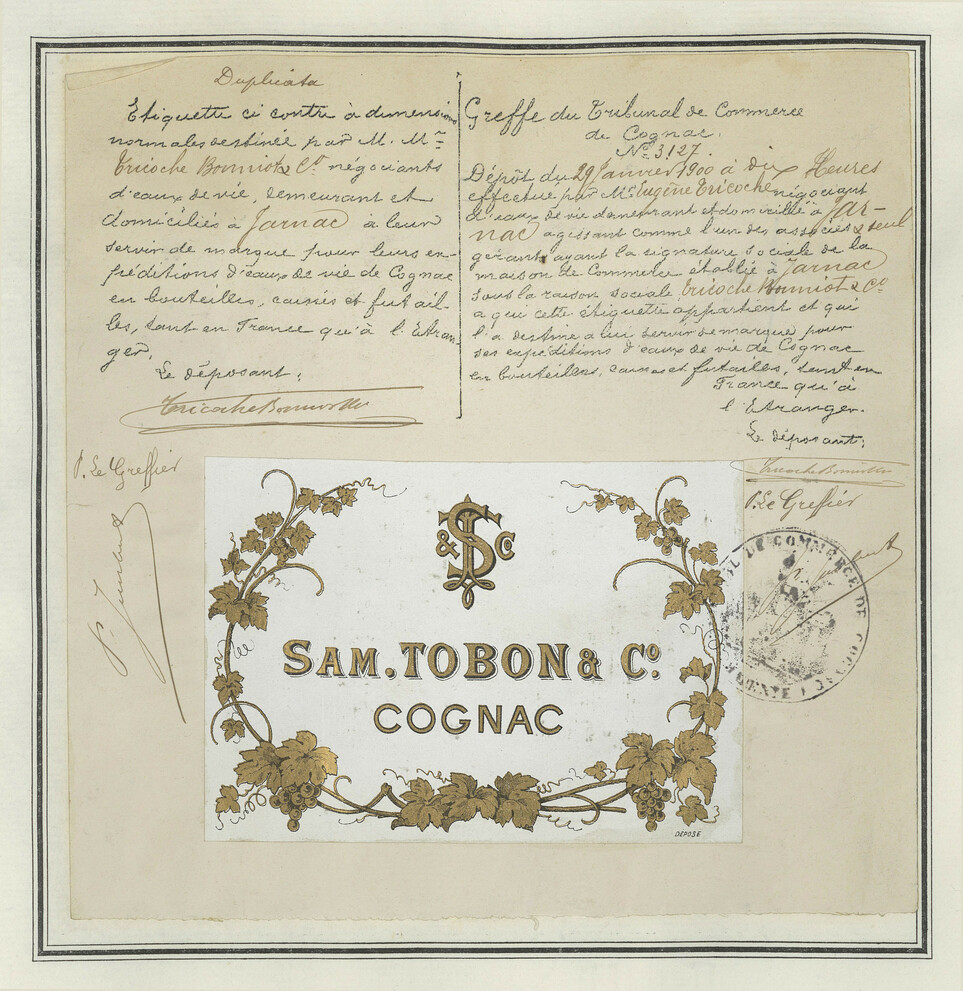 Duplicata
Etiquette ci contre à dimensions
normales destinée par M. Mrs
Tricoche Bonniot & Co négociants
d'eaux de vie, demeurant et
domiciliés à Jarnac à leur
servir de marque pour leurs ex-
péditions d'eaux de vie de Cognac
en bouteilles, caisses et futail-
les, tant en France qu'à l'Etran-
ger.
Le déposant:
Tricoche Bonniot & Co
P. Le Greffier
Greffe du Tribunal de Commerce
de Cognac.
No 3,127.
Dépôt du 29 Janvier 1900 à dix Heures
effectué par Mr Eugène Tricoche négociant
d'eaux de vie demeurant et domicilié à Jar-
nac agissant comme l'un des associés & seul
gérant ayant la signature sociale de la
maison de Commerce établie à Jarnac
sous la raison sociale Tricoche Bonniot & Co
a qui cette étiquette appartient et qui
l'a destine a lui servir de marque pour
ses expéditions d'eaux de vie de Cognac
en bouteilles, caisses et futailles, tant en
France qu'à
l'Etranger.
Le déposant:
Tricoche Bonniot & Co
P. Le Greffier
DE COMMERCE DE COGNAC
S & Co
SAM. TOBON & Co.
COGNAC
DÉPOSÉ